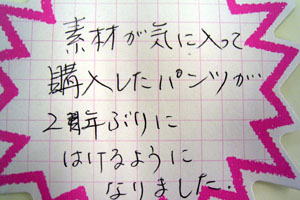 素材が気に入って
購入したパンツが…
2年ぶりに
はけるように
なりました.